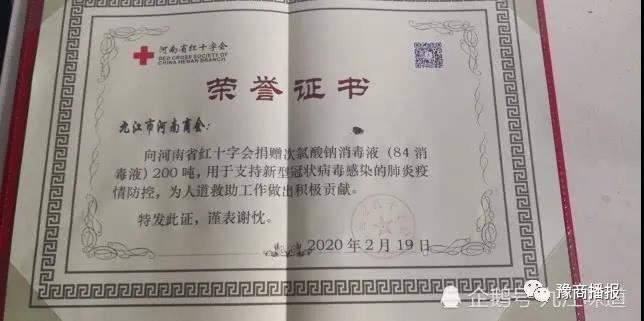 河南省红十字会
RED CROSS SOCIETY OF
CHINA HENAN BRANCH
荣誉证书
九江市河南商会:
向河南省红十字会捐赠次氯酸钠消毒液（84消
毒液）200吨，用于支持新型冠状病毒感染的肺炎疫
情防控，为人道救助工作做出积极贡献。
特发此证，谨表谢忱。
2020年2月19日
企鹅号 九江味道
豫商播报